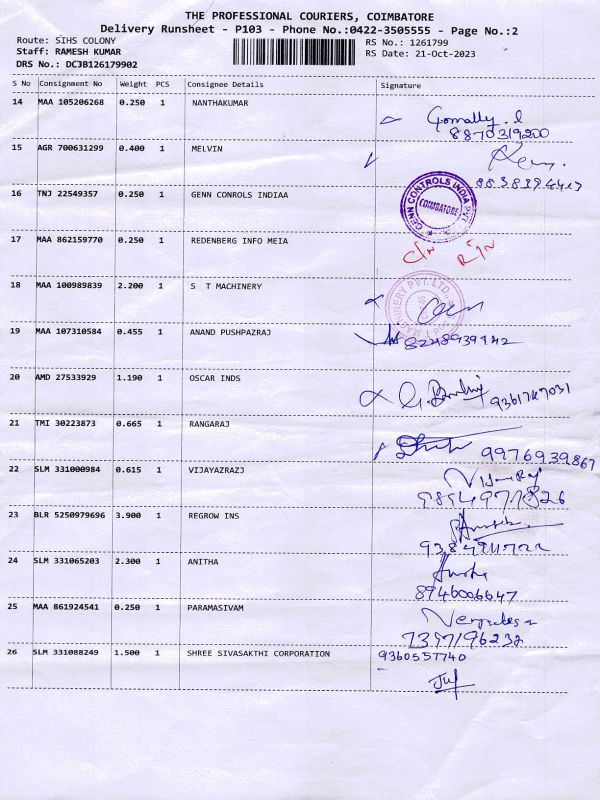 THE PROFESSIONAL COURIERS, COIMBATORE
Delivery Runsheet - P103 - Phone No.:0422-3505555 - Page No.:2
Route: SIHS COLONY
RS No.: 1261799
Staff: RAMESH KUMAR
RS Date: 21-Oct-2023
DRS No.: DCJB126179902
S No Consignment No Weight PCS Consignee Details Signature
14 MAA 105206268 0.250 1 NANTHAKUMAR
8870319200
15 AGR 700631299 0.400 1 MELVIN
8838394417
16 TNJ 22549357 0.250 1 GENN CONROLS INDIAA
GENN CONTROLS INDIA PVT COIMBATORE
17 MAA 862159770 0.250 1 REDENBERG INFO MEIA
18 MAA 100989839 2.200 1 S T MACHINERY
MACHINERY PVT. LTD
19 MAA 107310584 0.455 1 ANAND PUSHPAZRAJ
8248939942
20 AMD 27533929 1.190 1 OSCAR INDS
21 TMI 30223873 0.665 1 RANGARAJ
9976939867
22 SLM 331000984 0.615 1 VIJAYAZRAZJ
9894971826
23 BLR 5250979696 3.900 1 REGROW INS
24 SLM 331065203 2.300 1 ANITHA
8946006647
25 MAA 861924541 0.250 1 PARAMASIVAM
7397196232
26 SLM 331088249 1.500 1 SHREE SIVASAKTHI CORPORATION 9360557740